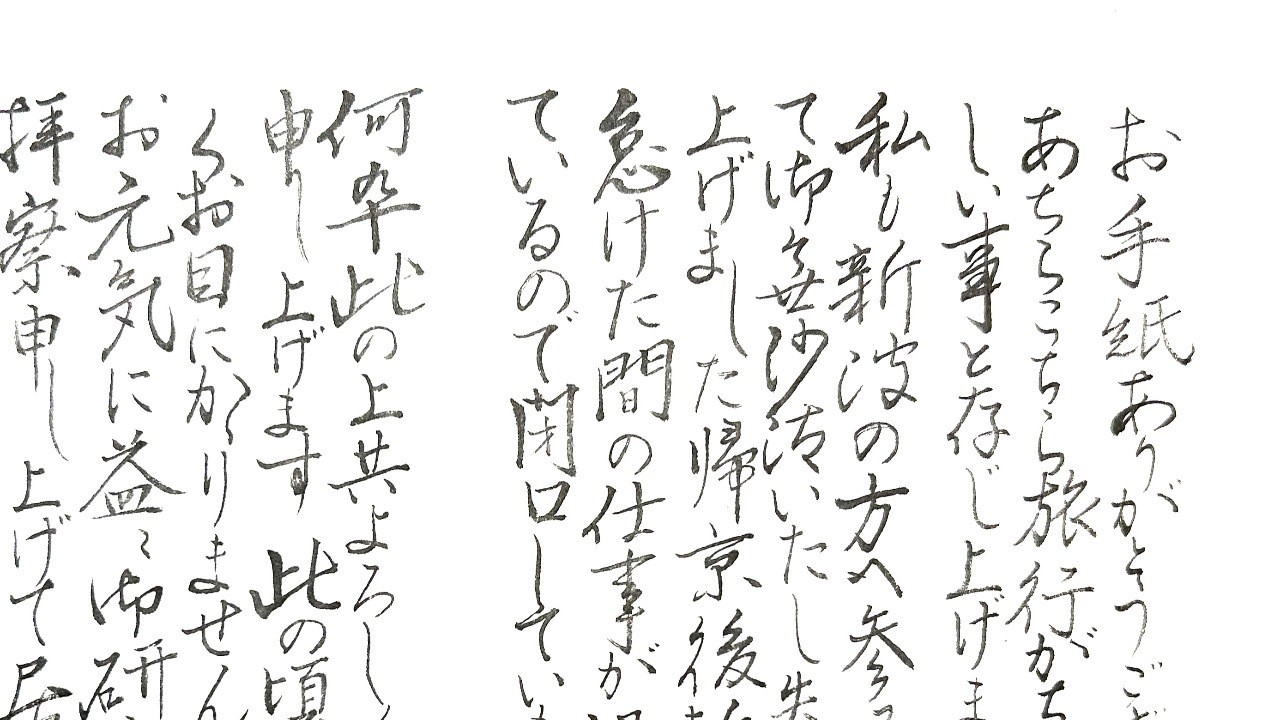 お手紙ありがとうご
あちらこちら旅行がち
しい事と存じ上げま
私も新波の方へ参つて
て御無沙汰いたし失
上げました帰京後
怠けた間の仕事が
ているので閉口してい
何卒此の上共よろし
申し上げます 此の頃
くお目にかゝりません
お元気に益〻御研
拝察申し上げて居